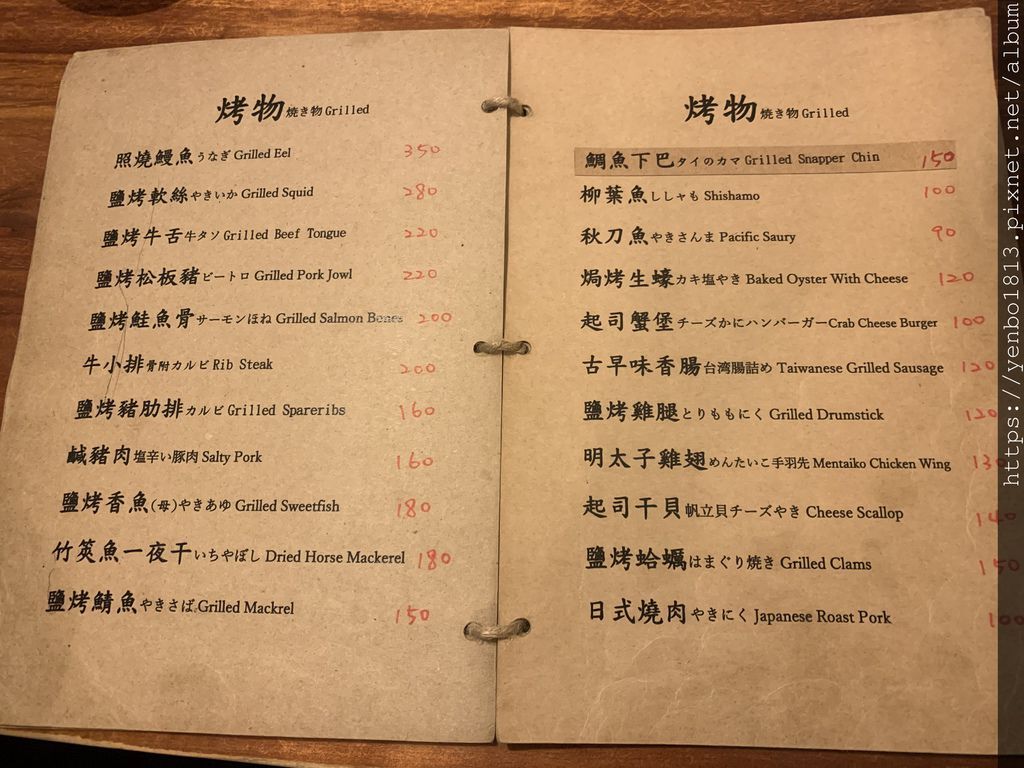 烤物 焼き物 Grilled
照燒鰻魚 うなぎ Grilled Eel 350
鹽烤軟絲 やきいか Grilled Squid 280
鹽烤牛舌 牛タソ Grilled Beef Tongue 220
鹽烤松板豬 ビートロ Grilled Pork Jowl 220
鹽烤鮭魚骨 サーモンほね Grilled Salmon Bones 200
牛小排 骨附カルビ Rib Steak 200
鹽烤豬肋排 カルビ Grilled Spareribs 160
鹹豬肉 塩辛い豚肉 Salty Pork 160
鹽烤香魚(母) やきあゆ Grilled Sweetfish 180
竹筴魚一夜干 いちやぼし Dried Horse Mackerel 180
鹽烤鯖魚 やきさば Grilled Mackrel 150
烤物 焼き物 Grilled
鯛魚下巴 タイのカマ Grilled Snapper Chin 150
柳葉魚 ししゃも Shishamo 100
秋刀魚 やきさんま Pacific Saury 90
焗烤生蠔 カキ塩やき Baked Oyster With Cheese 120
起司蟹堡 チーズかにハンバーガー Crab Cheese Burger 100
古早味香腸 台湾腸詰め Taiwanese Grilled Sausage 120
鹽烤雞腿 とりももにく Grilled Drumstick 120
明太子雞翅 めんたいこ手羽先 Mentaiko Chicken Wing 130
起司干貝 帆立貝チーズやき Cheese Scallop 140
鹽烤蛤蠣 はまぐり焼き Grilled Clams 150
日式燒肉 やきにく Japanese Roast Pork 100
https://yenbo1813.pixnet.net/album